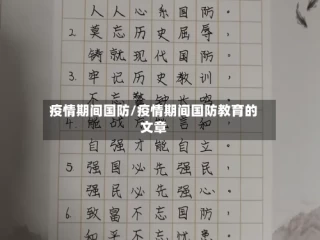 人人心系国防。
2.莫忘历史屈辱，
铸就现代国防。
3.牢记历史教训，
疫情期间国防/疫情期间国防教育的
文章
自强才能自立。
5强国必先强民，
强民必先强心。
6.致富不忘国防，